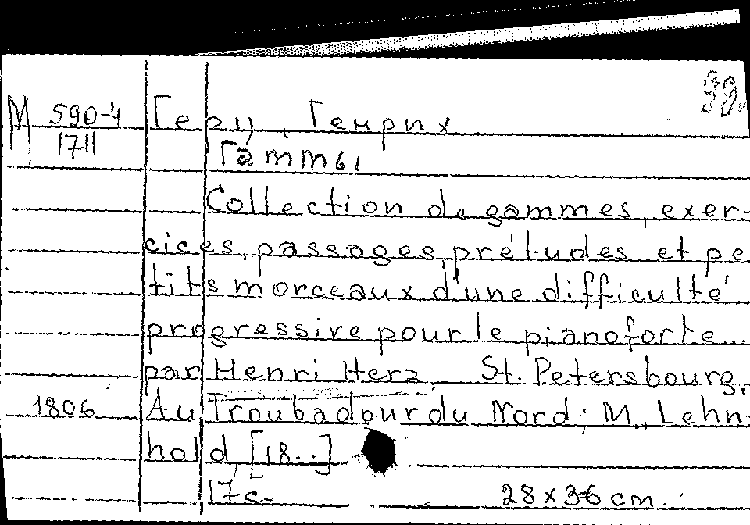 М 590-4
1711
Герц, Генрих
Гаммы
Collection de gammes, exer-
cices, passages, préludes et pe
tits morceaux d'une difficulté
progressive pour le pianoforte...
par Henri Herz. St. Petersbourg,
1806 Au Troubadour du Nord; M., Lehn-
hold, [18..]
17 с. 28 x 36 cm.